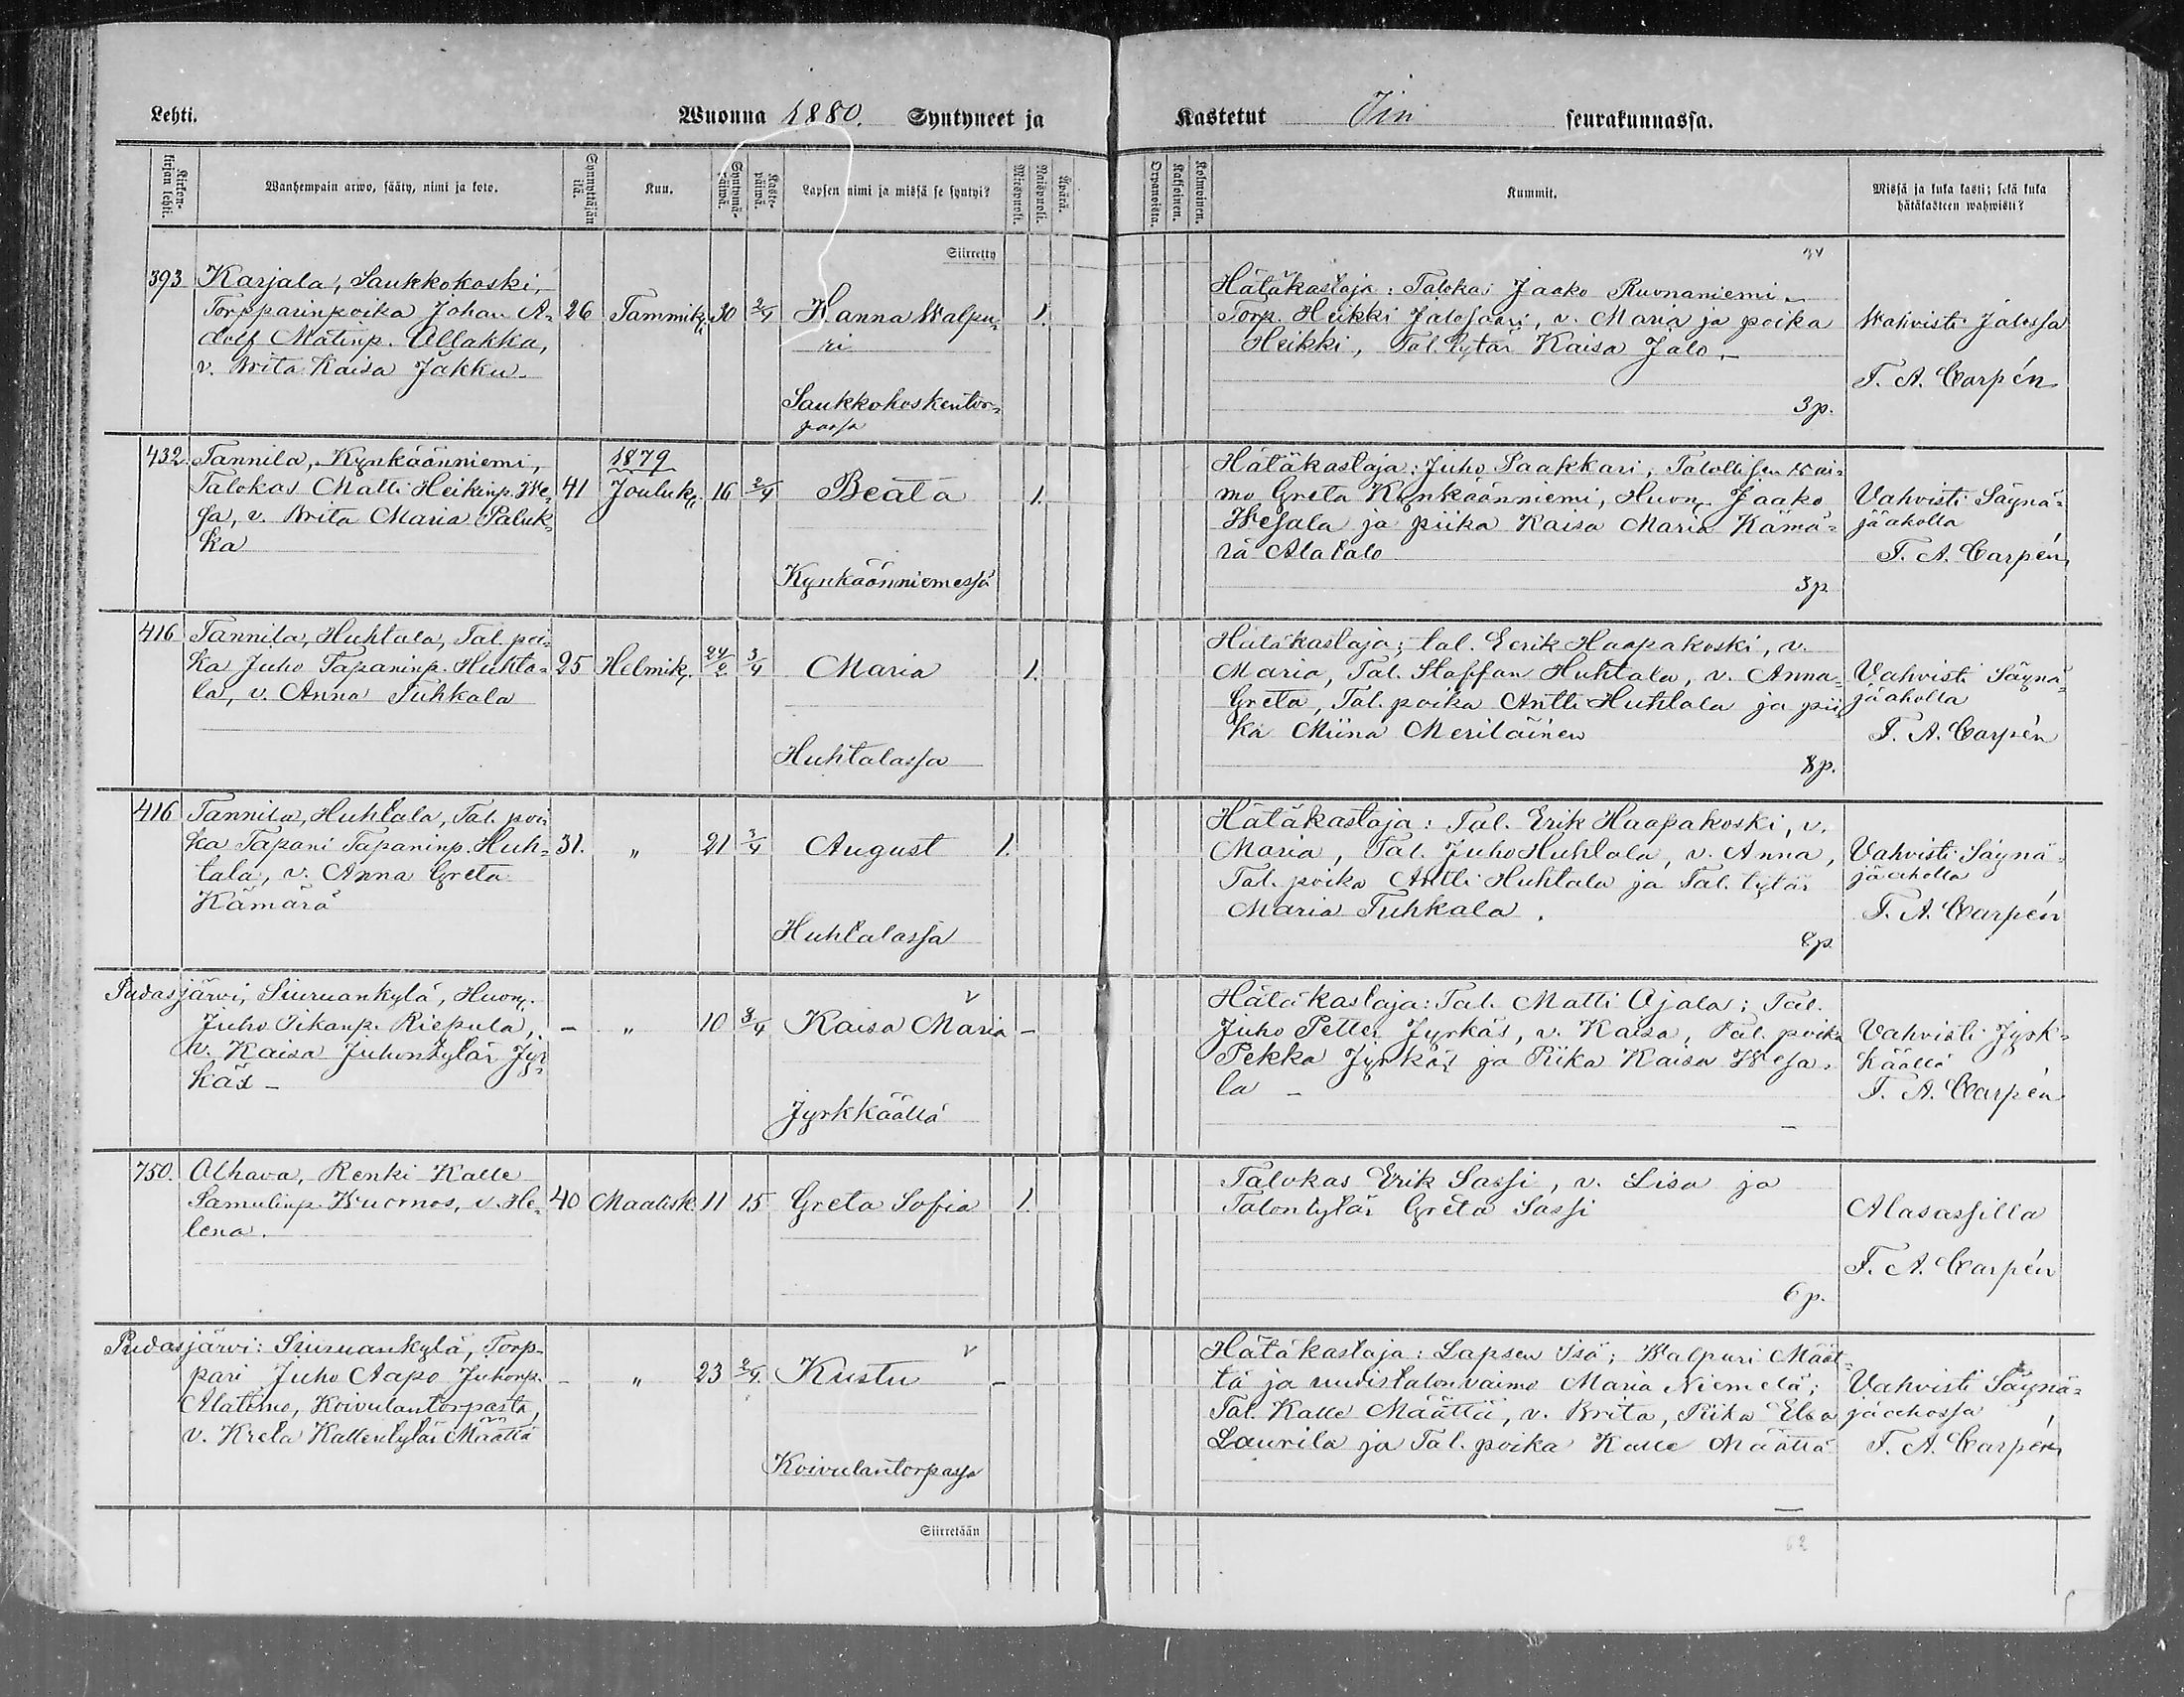 Lehti. Wuonna 1880. Syntyneet ja Kastetut Iin seurakunnassa.
Kirkonkirjan lehti.
Wanhempain arwo, sääty, nimi ja koto.
Synnyttäjän ikä.
Kuu.
Syntymäpäiwä.
Kastepäiwä.
Lapsen nimi ja missä se syntyi?
Miespuoli.
Naispuoli.
Äpärä.
Kaksoinen.
Kolmoinen.
Kummit.
Missä ja kuka kasti; sekä kuka
hätäkasteen wahwisti?
Siirretty
393 Karjala, Saukkokoski,
Torpparinpoika Johan A-
dolf Matinp. Ollakka,
v. Brita Kaisa Jakku
26 Tammik. 30 2/4
Hanna Walpu-
ri
1.
Saukkokoskentor-
passa
Hätäkastaja: Talokas Jaako Ruonaniemi
Torp. Heikki Jalosaari, v. Maria ja poika
Heikki, Tal. tytär Kaisa Jalo
3 p.
Wahvisti Jalossa
F. A. Carpén
432. Tannila, Kynkäänniemi,
Talokas Matti Heikinp. We-
sa, v. Brita Maria Paluk-
ka
41
1879
Jouluk. 16 2/4
Beata
1.
Kynkäänniemessä
Hätäkastaja: Juho Paakkari, Talollisen wai-
mo Greta Kynkäänniemi, Huon. Jaako
Wesala ja piika Kaisa Maria Kämä-
rä Alatalo
3 p
Vahvisti Säynä-
jäaholla
F. A. Carpén
416 Tannila, Huhtala, Tal. poi-
ka Juho Tapaninp. Huhta-
la, v. Anna Tuhkala
25 Helmik. 24/2 3/4
Maria
1.
Huhtalassa
Hätäkastaja; tal. Eerik Haapakoski, v.
Maria, Tal. Staffan Huhtala, v. Anna
Greta, Tal. poika Antti Huhtala ja pii-
ka Miina Meriläinen
8 p.
Vahvisti Säynä-
jäaholla
F. A. Carpén
416 Tannila, Huhtala, Tal. poi
ka Tapani Tapaninp. Huh-
tala, v. Anna Greta
Kämärä
31. " 21 3/4
August
1.
Huhtalassa
Hätäkastaja: Tal. Erik Haapakoski, v.
Maria, Tal. Juho Huhtala, v. Anna,
Tal. poika Antti Huhtala ja Tal. tytär
Maria Tuhkala.
8 p
Vahvisti Säynä-
jäaholla
F. A. Carpén
Pudasjärvi, Siuruankylä, Huon.
Juho Iikanp. Riepula,
v. Kaisa Juhontytär Jyr-
käs –
– " 10 3/4
v
Kaisa Maria –
Jyrkkäällä
Hätäkastaja: Tal. Matti Ojala; Tal.
Juho Petter Jyrkäs, v. Kaisa, Tal. poika
Pekka Jyrkäs ja Piika Kaisa Wesa-
la –
–
Vahvisti Jyrk-
käällä
F. A. Carpén
750. Olhava, Renki Kalle
Samulinp. Wuornos, v. He-
lena.
40 Maalisk. 11 15
Greta Sofia
1.
Talokas Erik Sassi, v. Lisa ja
Talontytär Greta Sassi
6 p.
Alasassilla
F. A. Carpén
Pudasjärvi: Siuruankylä, Torp-
pari Juho Aapo Juhonp.
Alatimo, Koivulantorpasta,
v. Kreta Kallentytär Määttä
– " 23 2/4.
v
Kustu –
Koivulantorpassa
Hätäkastaja: Lapsen Isä; Walpuri Määt-
tä ja uudistalonvaimo Maria Niemelä;
Tal. Kalle Määttä, v. Brita, Piika Elsa
Laurila ja Tal. poika Kalle Määttä
–
Vahvisti Säynä-
jäahossa
F. A. Carpén
Siirretään
62